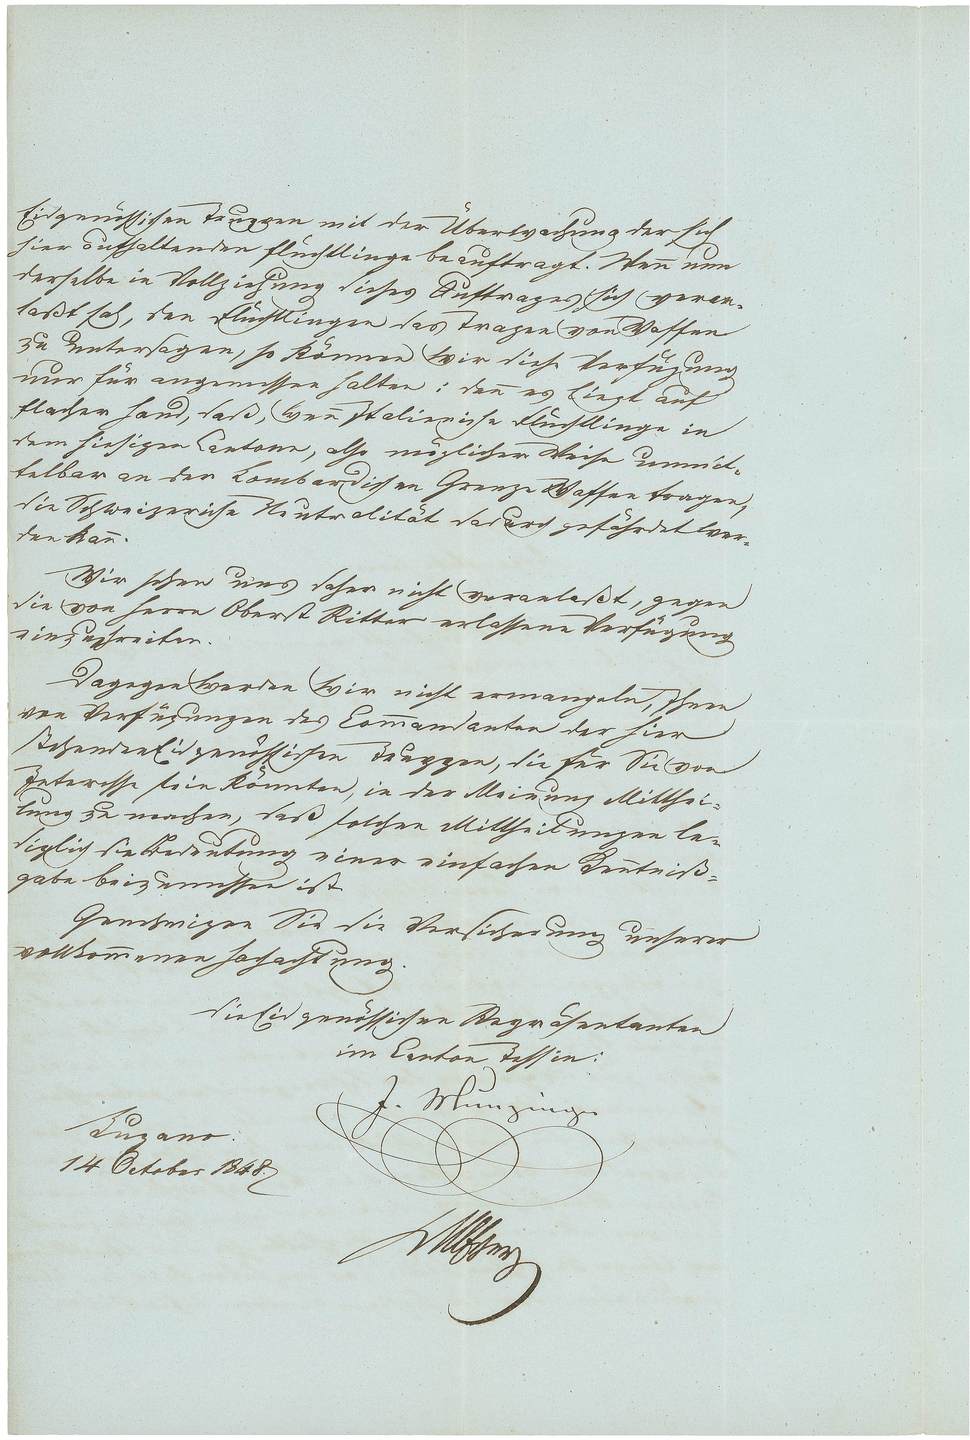 Eidgenössischen Truppen mit der Überwachung der sich
hier aufhaltenden Flüchtlinge beauftragt. Wenn nun
derselbe in Vollziehung dieses Auftrages sich veran-
laßt sah, den Flüchtlingen das Tragen von Waffen
zu untersagen, so können wir diese Verfügung
nur für angemessen halten: denn es liegt auf
flacher Hand, daß, wenn Italienische Flüchtlinge in
dem hiesigen Cantone, also möglicher Weise unmit-
telbar an der Lombardischen Grenze Waffen tragen,
die Schweizerische Neutralität dadurch gefährdet wer-
den kann.
Wir sehen uns daher nicht veranlaßt, gegen
die von Herrn Oberst Ritter erlassene Verfügung
einzuschreiten.
Dagegen werden wir nicht ermangeln, Ihnen
von Verfügungen des Commandanten der hier
stehenden Eidgenössischen Truppen, die für Sie von
Interesse sein könnten, in der Meinung Mitthei-
lung zu machen, daß solchen Mittheilungen le-
diglich die Bedeutung einer einfachen Kenntniß-
gabe beizumessen ist.
Genehmigen Sie die Versicherung unserer
vollkommenen Hochachtung.
Die Eidgenössischen Repräsentanten
im Canton Tessin:
J. Munzinger
Lugano.
14 October 1848.